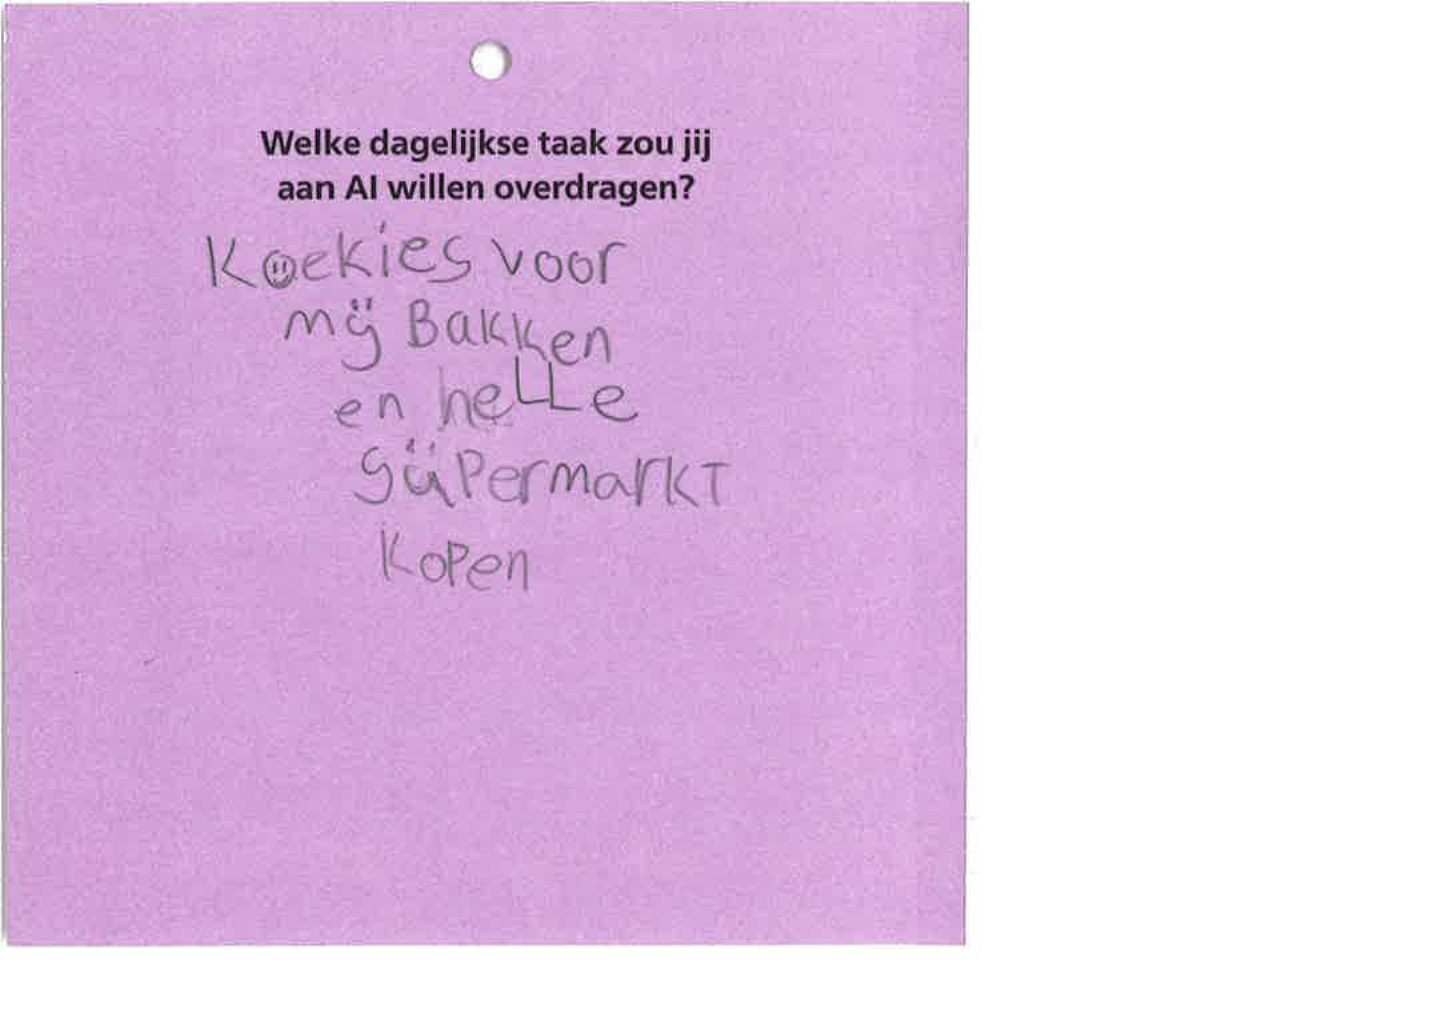 Welke dagelijkse taak zou jij
aan AI willen overdragen?
Koekies voor
mij Bakken
en heLLe
süPermarkT
KoPen